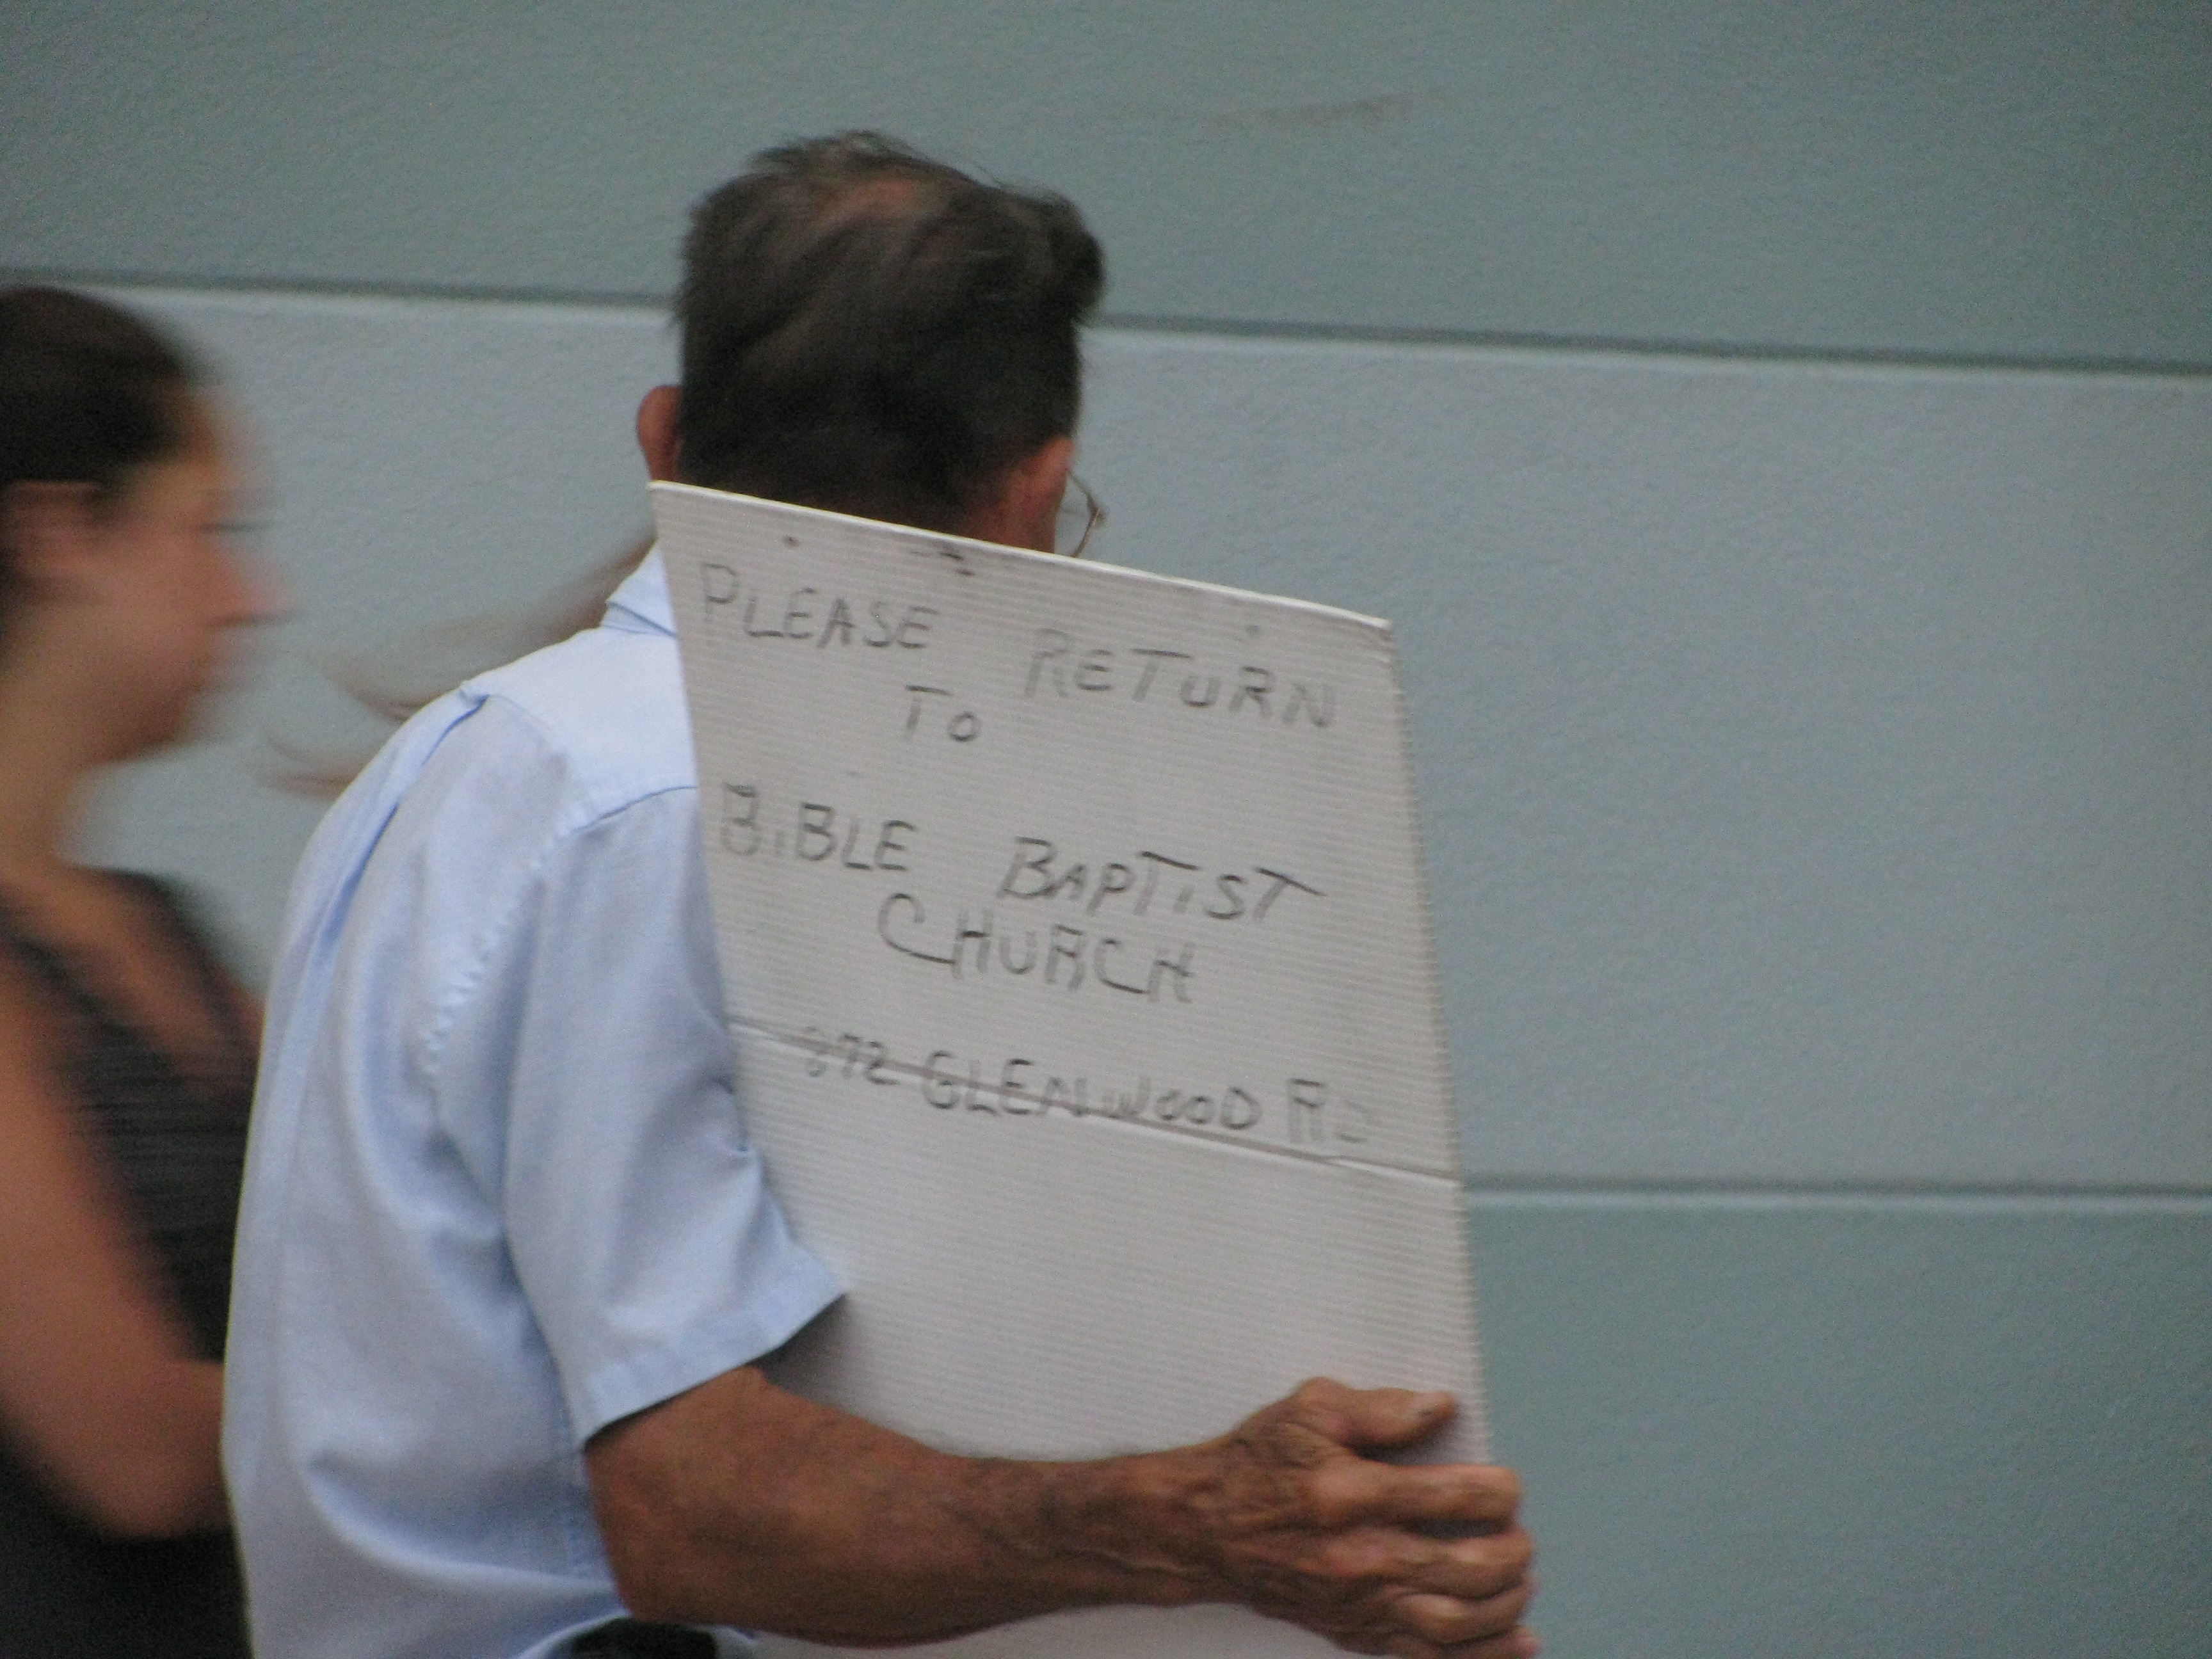 PLEASE RETURN
TO
BIBLE BAPTIST
CHURCH
872 GLENWOOD RD